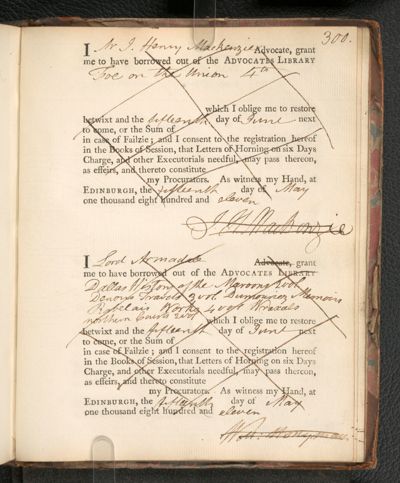 300.
I Mr J. Henry Mackenzie Advocate, grant
me to have borrowed out of the ADVOCATES LIBRARY
Foe on the Union 4to
which I oblige me to restore
betwixt and the fifteenth day of June next
to come, or the Sum of
in case of Failzie; and I consent to the registration hereof
in the Books of Session, that Letters of Horning on six Days
Charge, and other Executorials needful, may pass thereon,
as effeirs, and thereto constitute
my Procurators. As witness my Hand, at
EDINBURGH, the fifteenth day of May
one thousand eight hundred and eleven
J. H. Mackenzie
I Lord Armadale Advocate, grant
me to have borrowed out of the ADVOCATES LIBRARY
Dallas History of the Maroons 2 vol
Denons Travels 3 vol Dumouriez Memoirs
Rabelais Works 4 vol Wraxals
northern Courts 2 vol which I oblige me to restore
betwixt and the fifteenth day of June next
to come, or the Sum of
in case of Failzie; and I consent to the registration hereof
in the Books of Session, that Letters of Horning on six Days
Charge, and other Executorials needful, may pass thereon,
as effeirs, and thereto constitute
my Procurators. As witness my Hand, at
EDINBURGH, the fifteenth day of May
one thousand eight hundred and eleven